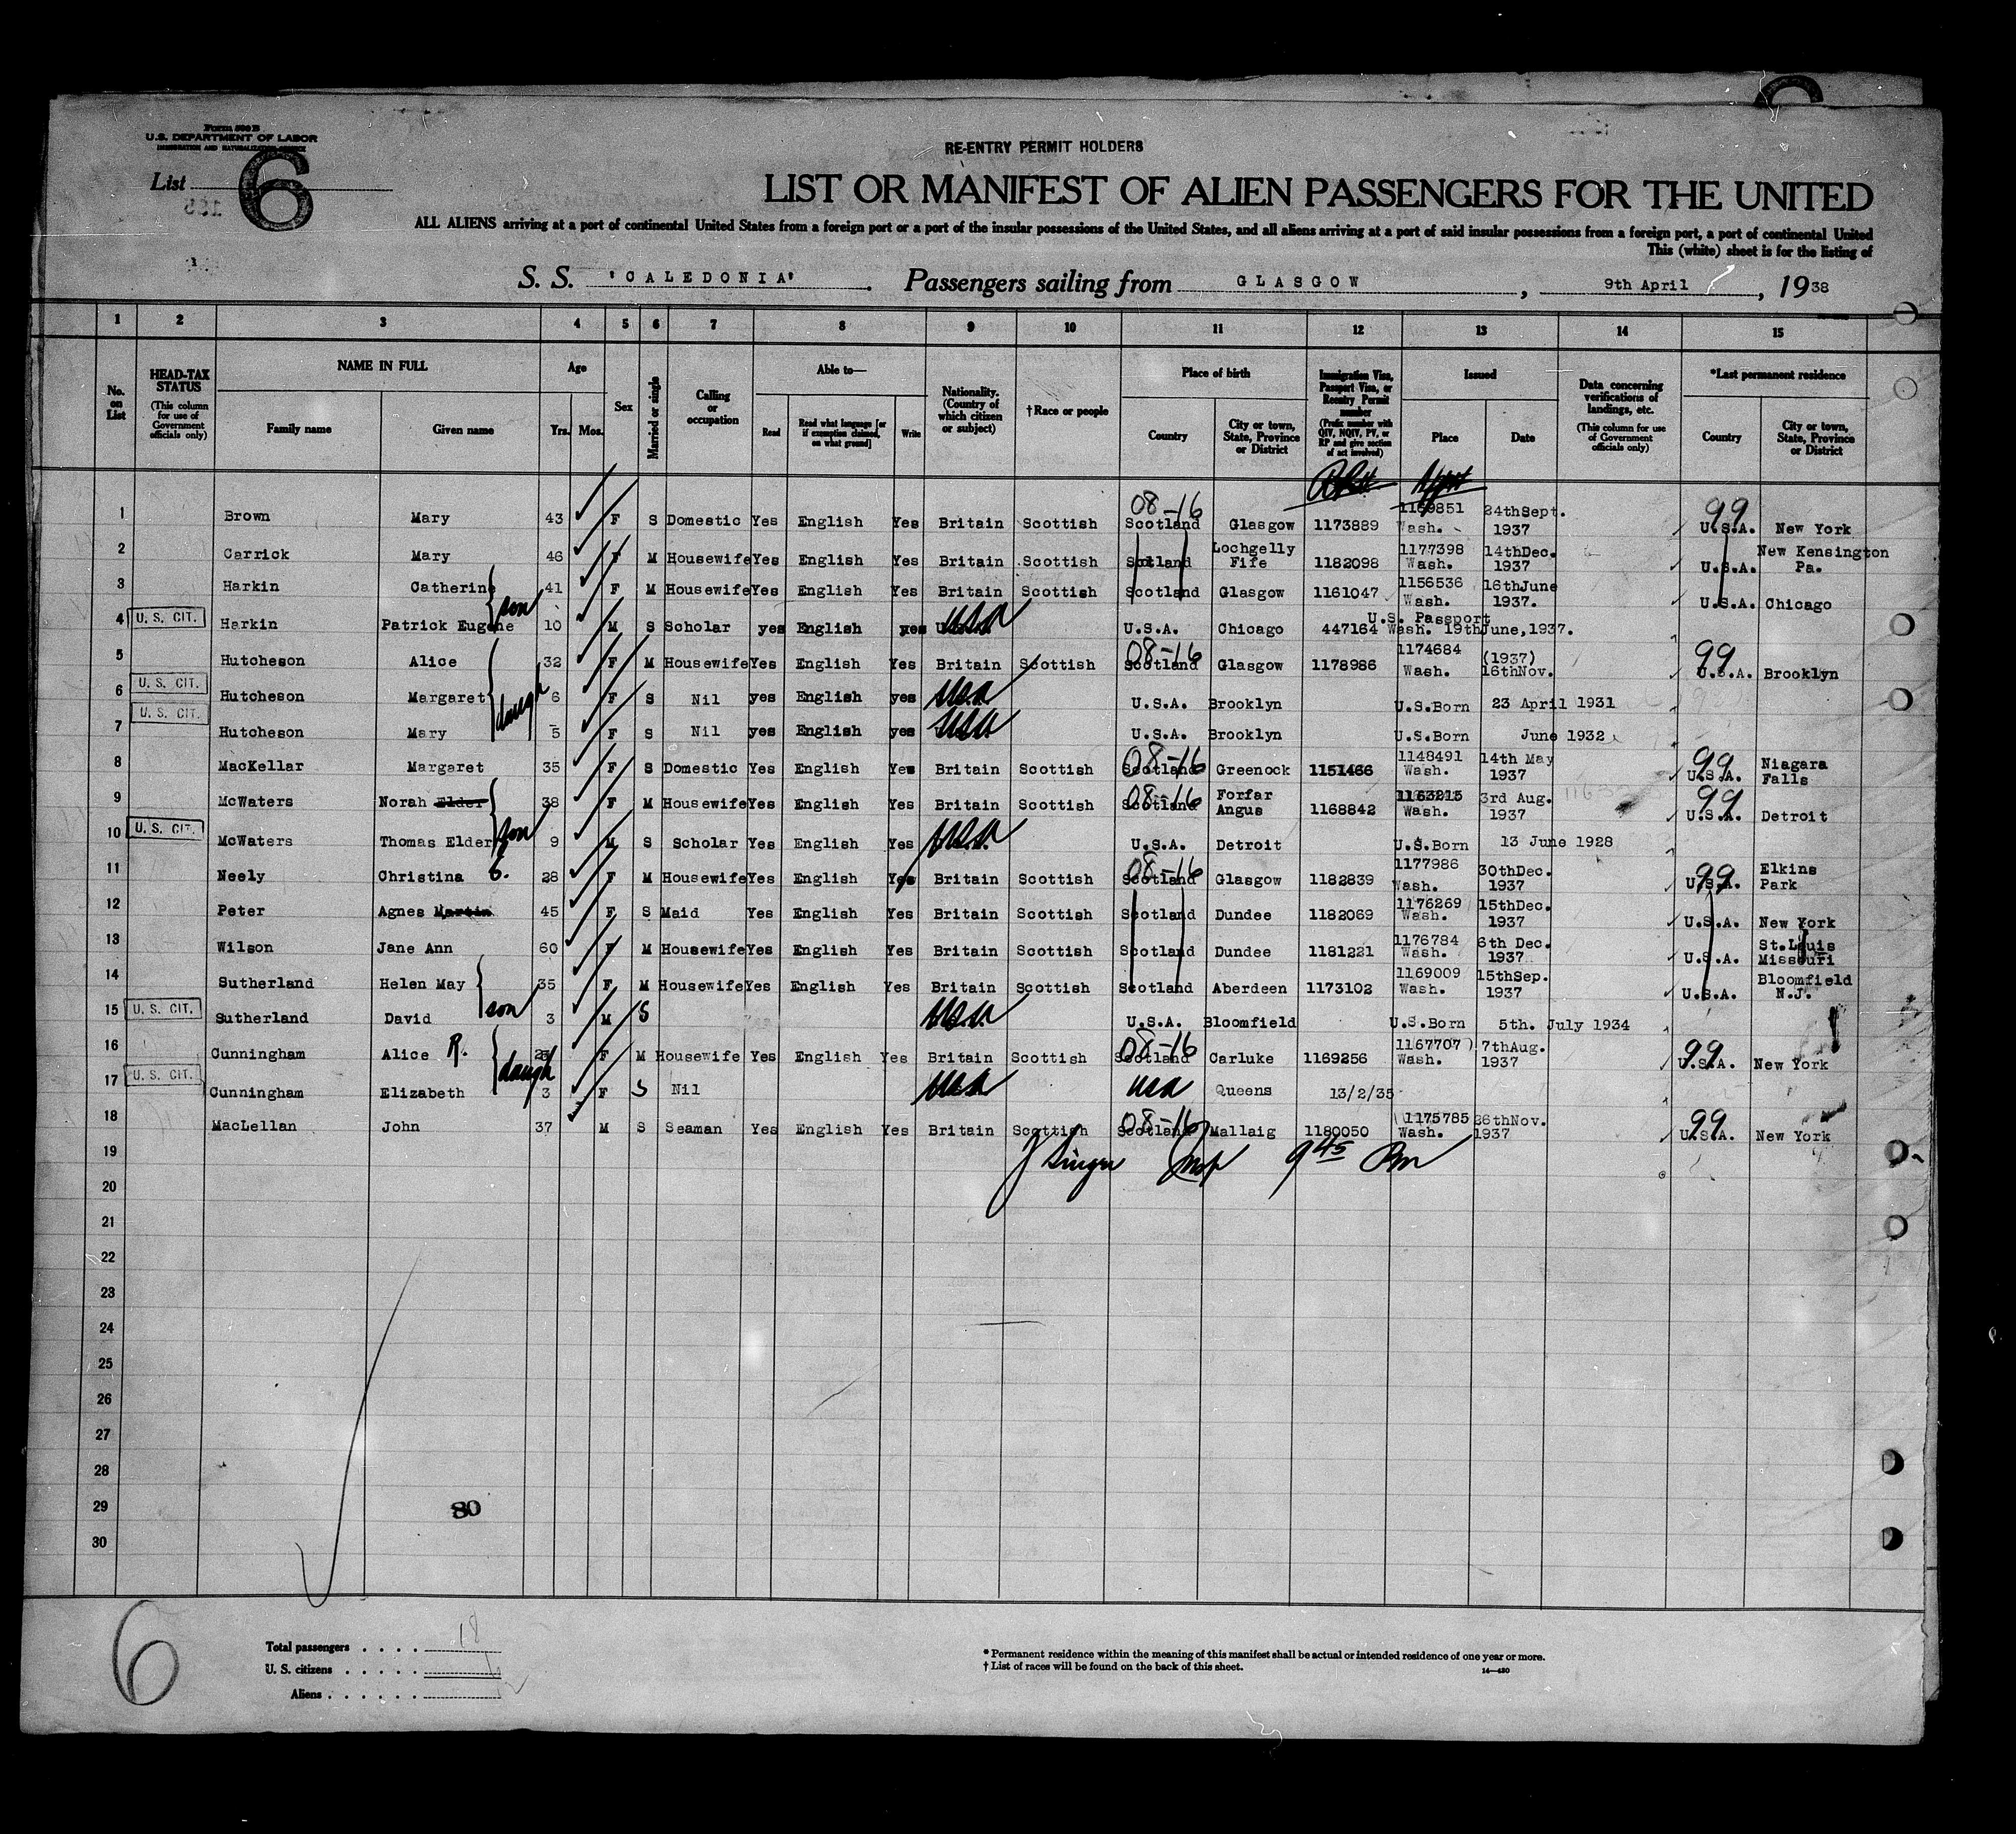 Form 500 B
U.S. DEPARTMENT OF LABOR
IMMIGRATION AND NATURALIZATION SERVICE
List 6
RE-ENTRY PERMIT HOLDERS
LIST OR MANIFEST OF ALIEN PASSENGERS FOR THE UNITED
ALL ALIENS arriving at a port of continental United States from a foreign port or a port of the insular possessions of the United States, and all aliens arriving at a port of said insular possessions from a foreign port, a port of continental United
This (white) sheet is for the listing of
S. S. 'CALEDONIA'. Passengers sailing from GLASGOW, 9th April, 1938
1 2 3 4 5 6 7 8 9 10 11 12 13 14 15
No. on List
HEAD-TAX STATUS (This column for use of Government officials only)
NAME IN FULL Family name Given name
Age Yrs. Mos.
Sex
Married or single
Calling or occupation
Able to— Read Read what language [or if exemption claimed, on what ground] Write
Nationality. (Country of which citizen or subject)
†Race or people
Place of birth Country City or town, State, Province or District
Immigration Visa, Passport Visa, or Reentry Permit number (Prefix number with QIV, NQIV, PV, or RP and give section of act involved)
Issued Place Date
Data concerning verifications of landings, etc. (This column for use of Government officials only)
*Last permanent residence Country City or town, State, Province or District
1 Brown Mary 43 F S Domestic Yes English Yes Britain Scottish 08-16 Scotland Glasgow 1173889 1169851 Wash. 24thSept. 1937 99 U.S.A. New York
2 Carrick Mary 46 F M Housewife Yes English Yes Britain Scottish Scotland Lochgelly Fife 1182098 1177398 Wash. 14thDec. 1937 U.S.A. New Kensington Pa.
3 Harkin Catherine 41 F M Housewife Yes English Yes Britain Scottish Scotland Glasgow 1161047 1156536 Wash. 16thJune 1937. U.S.A. Chicago
4 U. S. CIT. Harkin Patrick Eugene son 10 M S Scholar yes English yes USA U.S.A. Chicago 447164 U.S. Passport Wash. 19thJune,1937.
5 Hutcheson Alice 32 F M Housewife Yes English Yes Britain Scottish 08-16 Scotland Glasgow 1178986 1174684 Wash. (1937) 16thNov. 99 U.S.A. Brooklyn
6 U. S. CIT. Hutcheson Margaret daugh 6 F S Nil yes English yes USA U.S.A. Brooklyn U.S.Born 23 April 1931
7 U. S. CIT. Hutcheson Mary 5 F S Nil yes English yes USA U.S.A. Brooklyn U.S.Born June 1932
8 MacKellar Margaret 35 F S Domestic Yes English Yes Britain Scottish 08-16 Scotland Greenock 1151466 1148491 Wash. 14th May 1937 99 U.S.A. Niagara Falls
9 McWaters Norah Elder 38 F M Housewife Yes English Yes Britain Scottish 08-16 Scotland Forfar Angus 1168842 1163215 Wash. 3rd Aug. 1937 99 U.S.A. Detroit
10 U. S. CIT. McWaters Thomas Elder son 9 M S Scholar Yes English Yes U.S.A. U.S.A. Detroit U.S.Born 13 June 1928
11 Neely Christina 28 F M Housewife Yes English Yes Britain Scottish 08-16 Scotland Glasgow 1182839 1177986 Wash. 30thDec. 1937 99 U.S.A. Elkins Park
12 Peter Agnes Martin 45 F S Maid Yes English Yes Britain Scottish Scotland Dundee 1182069 1176269 Wash. 15thDec. 1937 U.S.A. New York
13 Wilson Jane Ann 60 F M Housewife Yes English Yes Britain Scottish Scotland Dundee 1181221 1176784 Wash. 6th Dec. 1937 U.S.A. St.Louis Missouri
14 Sutherland Helen May 35 F M Housewife Yes English Yes Britain Scottish Scotland Aberdeen 1173102 1169009 Wash. 15thSep. 1937 U.S.A. Bloomfield N.J.
15 U. S. CIT. Sutherland David son 3 M S U.S.A. U.S.A. Bloomfield U.S.Born 5th. July 1934
16 Cunningham Alice R. F M Housewife Yes English Yes Britain Scottish 08-16 Scotland Carluke 1169256 1167707 Wash. 7thAug. 1937 99 U.S.A. New York
17 U. S. CIT. Cunningham Elizabeth daugh 3 F S Nil USA USA Queens 13/2/35
18 MacLellan John 37 M S Seaman Yes English Yes Britain Scottish 08-16 Scotland Mallaig 1180050 1175785 Wash. 26thNov. 1937 99 U.S.A. New York
19 J Singer Insp 9 45 Pm
20
21
22
23
24
25
26
27
28
29 80
30
6
Total passengers 18
U. S. citizens
Aliens
* Permanent residence within the meaning of this manifest shall be actual or intended residence of one year or more.
† List of races will be found on the back of this sheet.
14—430